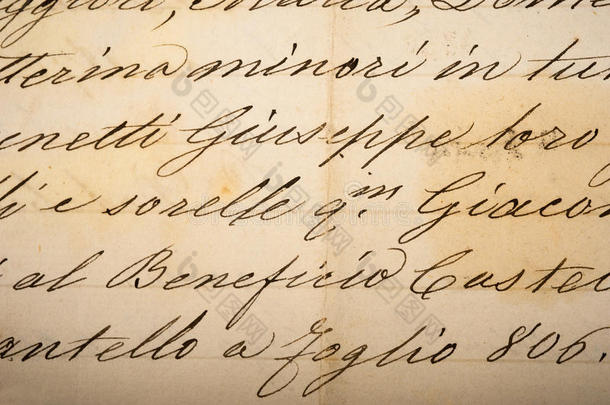 Maria,
tterina minori in tu
unetti Giuseppe loro
li e sorelle q.m Giacom
al Beneficio Castel
antello a foglio 806.